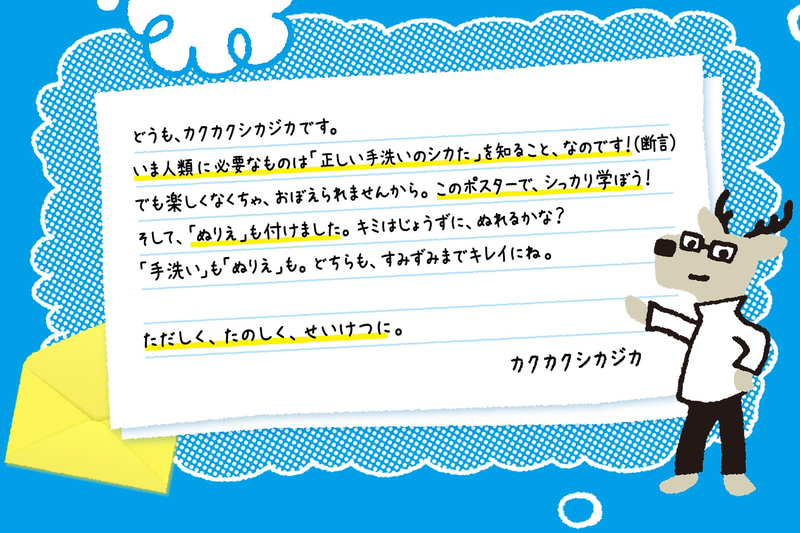 どうも、カクカクシカジカです。
いま人類に必要なものは「正しい手洗いのシカた」を知ること、なのです!(断言)
でも楽しくなくちゃ、おぼえられませんから。このポスターで、シッカリ学ぼう!
そして、「ぬりえ」も付けました。キミはじょうずに、ぬれるかな?
「手洗い」も「ぬりえ」も。どちらも、すみずみまでキレイにね。
ただしく、たのしく、せいけつに。
カクカクシカジカ